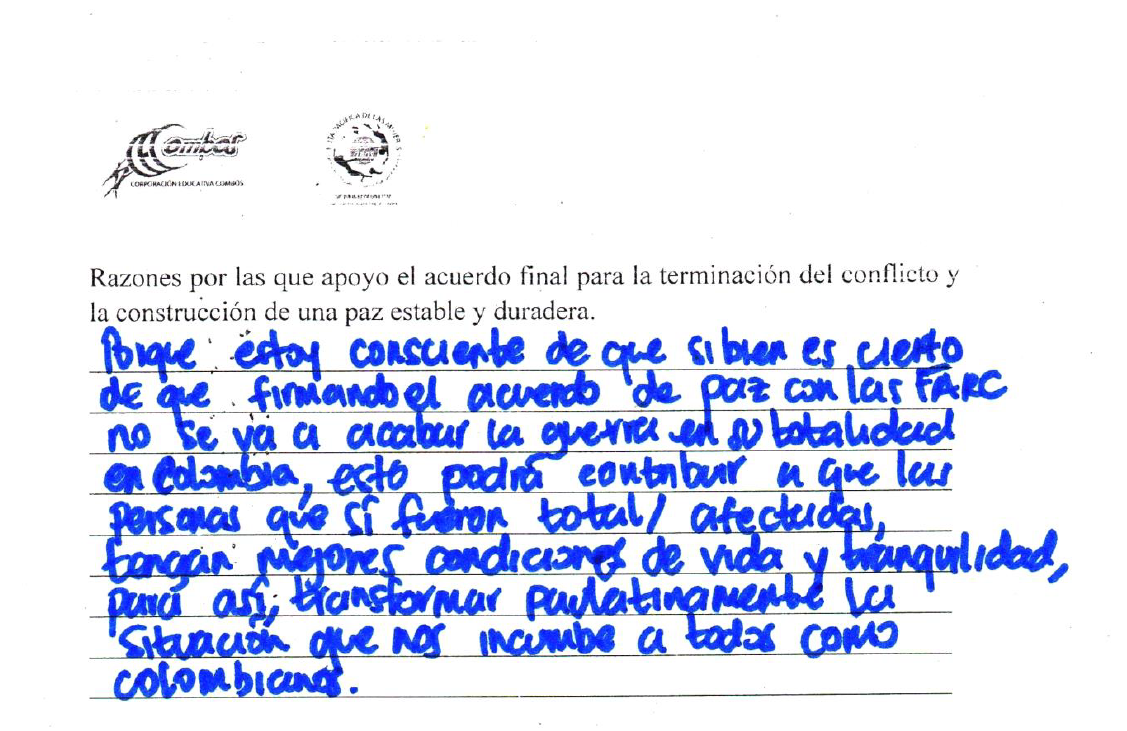 Combos
CORPORACIÓN EDUCATIVA COMBOS
PACIFICA DE LAS
Razones por las que apoyo el acuerdo final para la terminación del conflicto y
la construcción de una paz estable y duradera.
Porque estoy consciente de que si bien es cierto
de que firmando el acuerdo de paz con las FARC
no se va a acabar la guerra en su totalidad
en Colombia, esto podrá contribuir a que las
personas que sí fueron total/ afectadas,
tengan mejores condiciones de vida y tranquilidad,
para así, transformar paulatinamente la
situación que nos incumbe a todos como
colombianos.